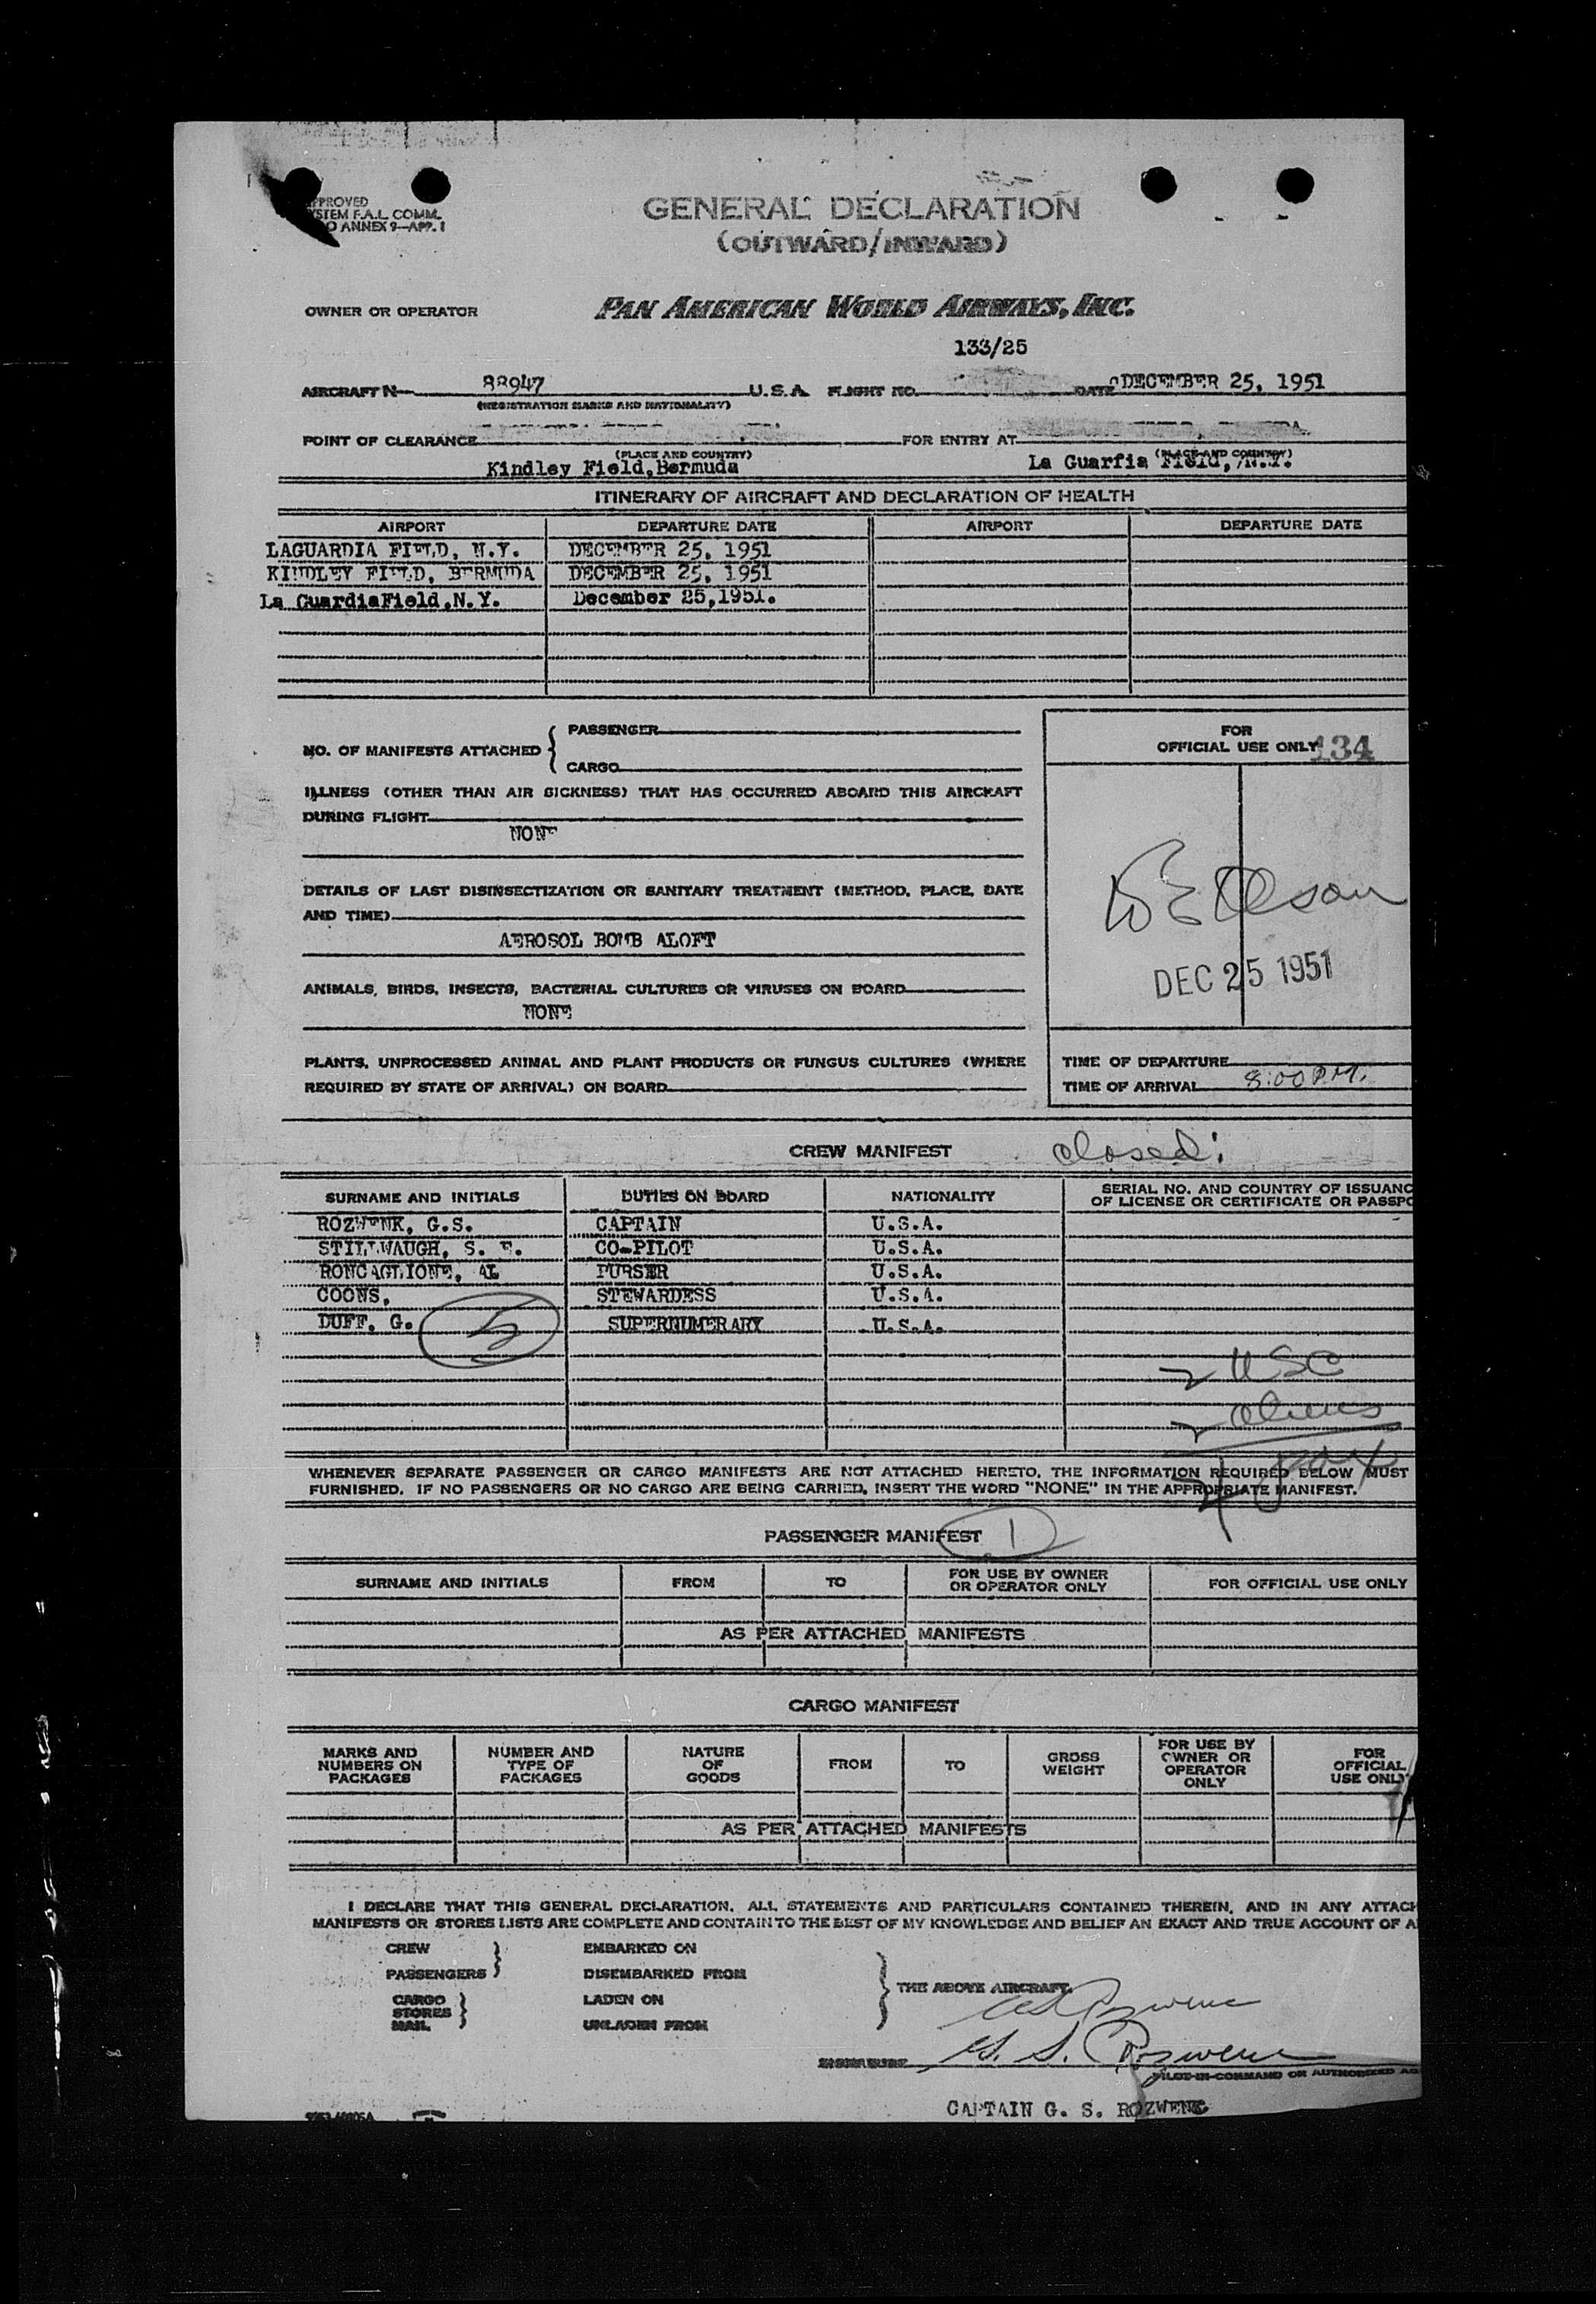 PPROVED
YSTEM F.A.L. COMM.
O ANNEX 9—APP. 1
GENERAL DECLARATION
(OUTWARD/INWARD)
OWNER OR OPERATOR PAN AMERICAN WORLD AIRWAYS, INC.
133/25
AIRCRAFT N— 88947 U.S.A. FLIGHT NO. DATE DECEMBER 25, 1951
(REGISTRATION MARKS AND NATIONALITY)
POINT OF CLEARANCE FOR ENTRY AT
(PLACE AND COUNTRY) (PLACE AND COUNTRY)
Kindley Field,Bermuda La Guarfia Field, N.Y.
ITINERARY OF AIRCRAFT AND DECLARATION OF HEALTH
AIRPORT DEPARTURE DATE AIRPORT DEPARTURE DATE
LAGUARDIA FIELD, N.Y. DECEMBER 25, 1951
KINDLEY FIELD, BERMUDA DECEMBER 25, 1951
La GuardiaField,N.Y. December 25,1951.
NO. OF MANIFESTS ATTACHED { PASSENGER
CARGO
FOR
OFFICIAL USE ONLY 134
ILLNESS (OTHER THAN AIR SICKNESS) THAT HAS OCCURRED ABOARD THIS AIRCRAFT
DURING FLIGHT
NONE
DETAILS OF LAST DISINSECTIZATION OR SANITARY TREATMENT (METHOD, PLACE, DATE
AND TIME)
AEROSOL BOMB ALOFT
Olson
DEC 25 1951
ANIMALS, BIRDS, INSECTS, BACTERIAL CULTURES OR VIRUSES ON BOARD
NONE
PLANTS, UNPROCESSED ANIMAL AND PLANT PRODUCTS OR FUNGUS CULTURES (WHERE
REQUIRED BY STATE OF ARRIVAL) ON BOARD
TIME OF DEPARTURE
TIME OF ARRIVAL 8:00 P.M.
CREW MANIFEST closed:
SURNAME AND INITIALS DUTIES ON BOARD NATIONALITY SERIAL NO. AND COUNTRY OF ISSUANC
OF LICENSE OR CERTIFICATE OR PASSPO
ROZWENK, G.S. CAPTAIN U.S.A.
STILLWAUGH, S. E. CO-PILOT U.S.A.
RONCAGLIONE, AL PURSER U.S.A.
COONS, STEWARDESS U.S.A.
DUFF, G. 5 SUPERNUMERARY U.S.A.
2 USC
2 aliens
4 pax
WHENEVER SEPARATE PASSENGER OR CARGO MANIFESTS ARE NOT ATTACHED HERETO, THE INFORMATION REQUIRED BELOW MUST
FURNISHED. IF NO PASSENGERS OR NO CARGO ARE BEING CARRIED, INSERT THE WORD "NONE" IN THE APPROPRIATE MANIFEST.
PASSENGER MANIFEST 1
SURNAME AND INITIALS FROM TO FOR USE BY OWNER
OR OPERATOR ONLY FOR OFFICIAL USE ONLY
AS PER ATTACHED MANIFESTS
CARGO MANIFEST
MARKS AND
NUMBERS ON
PACKAGES
NUMBER AND
TYPE OF
PACKAGES
NATURE
OF
GOODS
FROM
TO
GROSS
WEIGHT
FOR USE BY
OWNER OR
OPERATOR
ONLY
FOR
OFFICIAL
USE ONLY
AS PER ATTACHED MANIFESTS
I DECLARE THAT THIS GENERAL DECLARATION, ALL STATEMENTS AND PARTICULARS CONTAINED THEREIN, AND IN ANY ATTACH
MANIFESTS OR STORES LISTS ARE COMPLETE AND CONTAIN TO THE BEST OF MY KNOWLEDGE AND BELIEF AN EXACT AND TRUE ACCOUNT OF A
CREW EMBARKED ON
PASSENGERS DISEMBARKED FROM
THE ABOVE AIRCRAFT.
CARGO LADEN ON
STORES
MAIL UNLADEN FROM
SIGNATURE G. S. Rozwenc
PILOT-IN-COMMAND OR AUTHORIZED AG
CAPTAIN G. S. ROZWENC